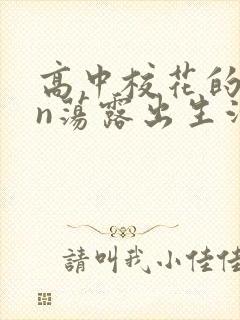 高中校花的
n荡露出生活
請叫我小佳佳